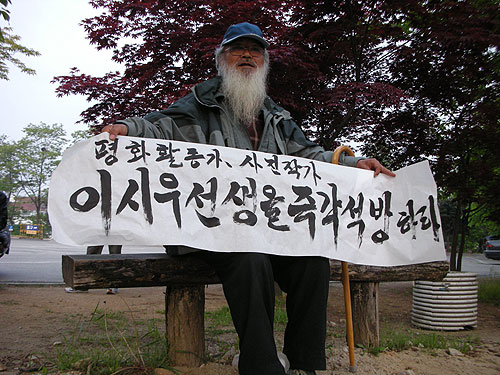 평화활동가, 사진작가
이시우선생을즉각석방하라